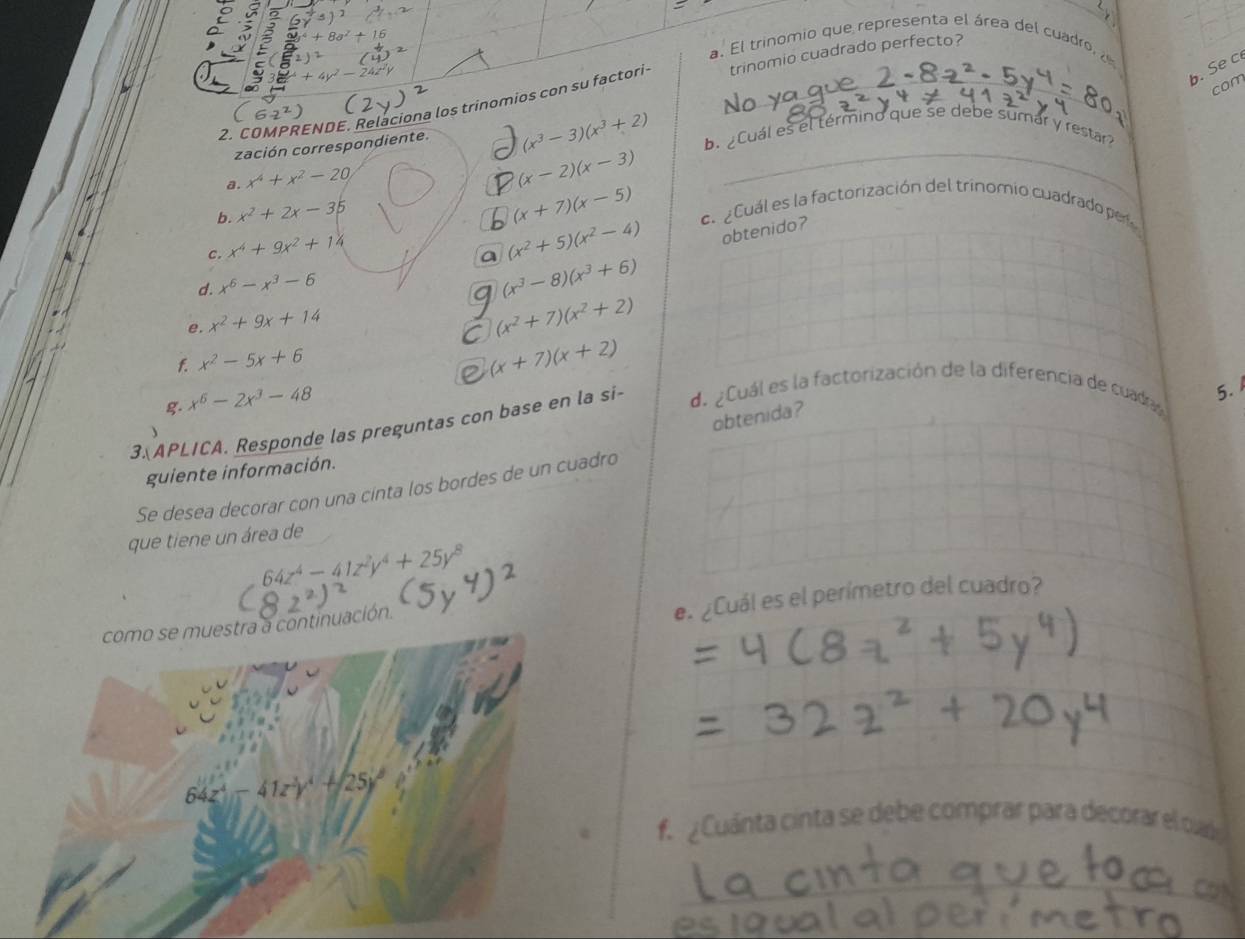 + 8a² + 16
+ 4y² − 24z²y
(6z²) (2y)²
2. COMPRENDE. Relaciona los trinomios con su factori-
zación correspondiente.
a. x⁴ + x² − 20
b. x² + 2x − 35
c. x⁴ + 9x² + 14
d. x⁶ − x³ − 6
e. x² + 9x + 14
f. x² − 5x + 6
g. x⁶ − 2x³ − 48
d (x³ − 3)(x³ + 2)
(x − 2)(x − 3)
b (x + 7)(x − 5)
a (x² + 5)(x² − 4)
g (x³ − 8)(x³ + 6)
c (x² + 7)(x² + 2)
e (x + 7)(x + 2)
3. APLICA. Responde las preguntas con base en la si-
guiente información.
Se desea decorar con una cinta los bordes de un cuadro
que tiene un área de
64z⁴ − 41z²y⁴ + 25y⁸
(8z²)² (5y⁴)²
como se muestra a continuación.
64z⁴ − 41z²y⁴ + 25y⁸
a. El trinomio que representa el área del cuadro,
trinomio cuadrado perfecto?
No ya que 2 - 8z² - 5y⁴ = 80z
80z²y⁴ ≠ 41z²y⁴
b. ¿Cuál es el término que se debe sumar y restar?
c. ¿Cuál es la factorización del trinomio cuadrado
obtenido?
d. ¿Cuál es la factorización de la diferencia de
obtenida?
e. ¿Cuál es el perímetro del cuadro?
= 4(8z² + 5y⁴)
= 32z² + 20y⁴
f. ¿Cuánta cinta se debe comprar para decorar el
La cinta que toca
es igual al perímetro
b. Se
com
5.